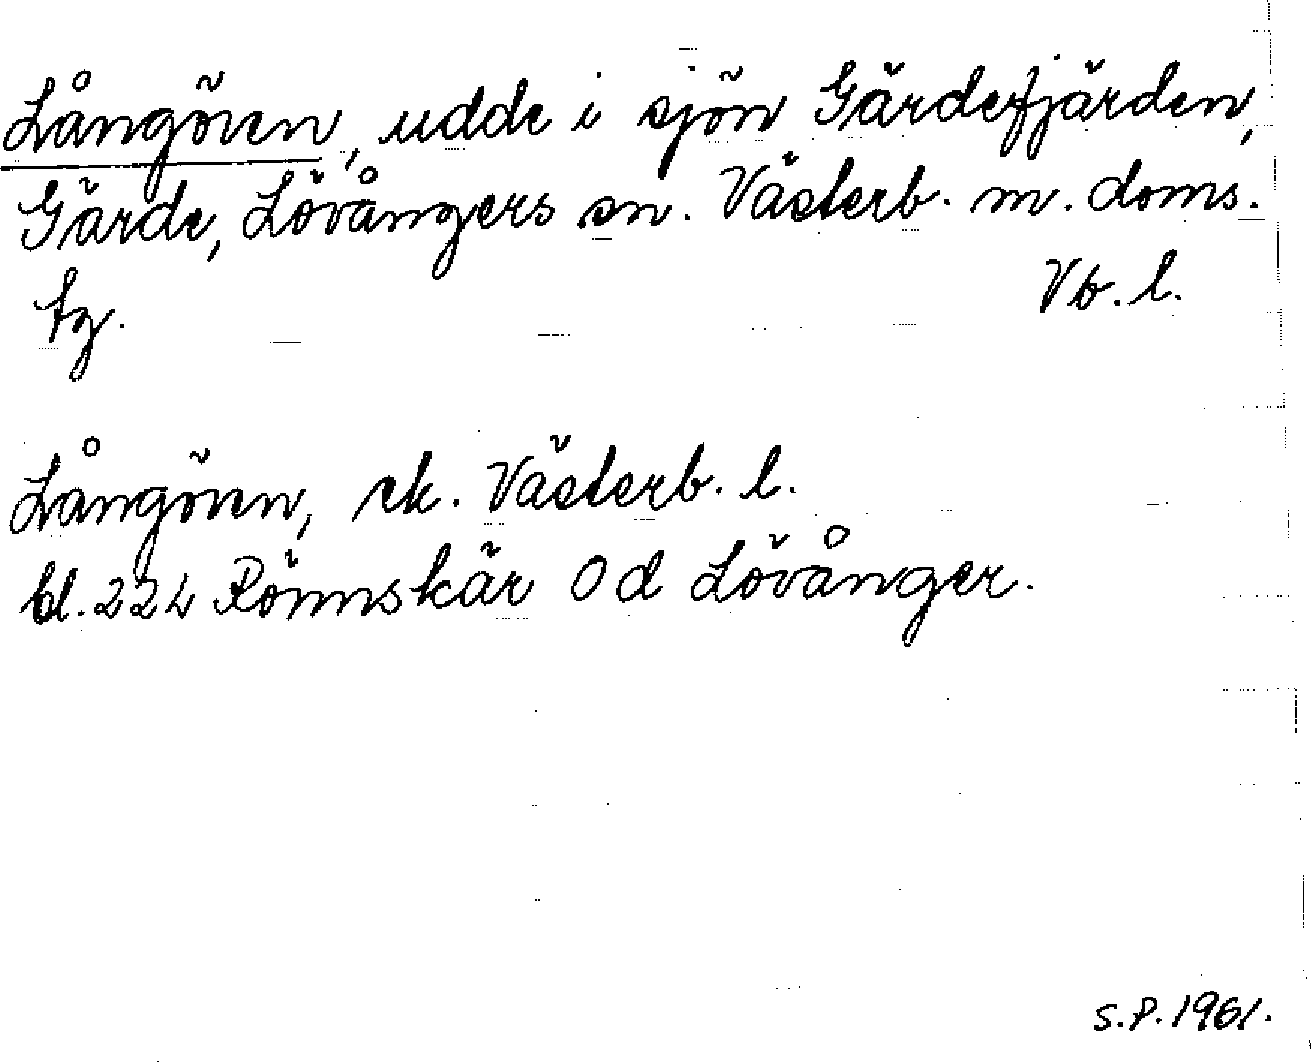 Långören, udde i sjön Gärdefjärden,
Gärde, Lövångers sn. Västerb. m. doms.
fg. Vb. l.
Långören, ek. Västerb. l.
bl. 224 Rönnskär Od Lövånger.
S.P. 1961.